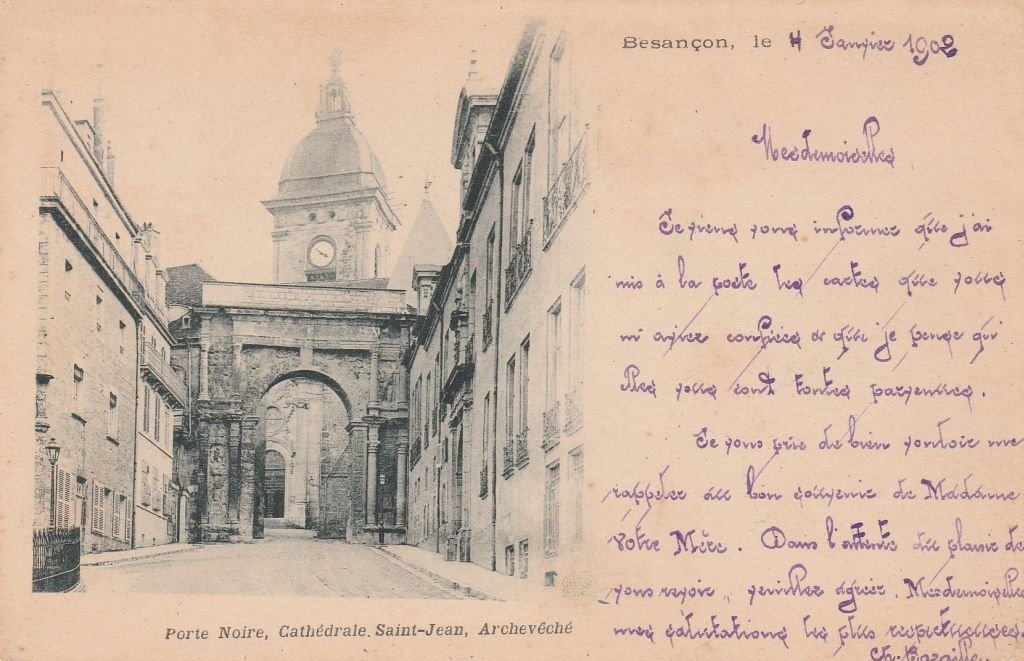 Besançon, le 4 Janvier 1902
Mesdemoiselles
Je viens vous informer que j'ai
mis à la poste les cartes que vous
m'aviez confiées & que je pense qu'
elles vous sont toutes parvenues.
Je vous prie de bien vouloir me
rappeler au bon souvenir de Madame
Votre Mère. Dans l'attente du plaisir de
vous revoir, veuillez agréer, Mesdemoiselles
mes salutations les plus respectueuses
Ch.
Porte Noire, Cathédrale Saint-Jean, Archevêché